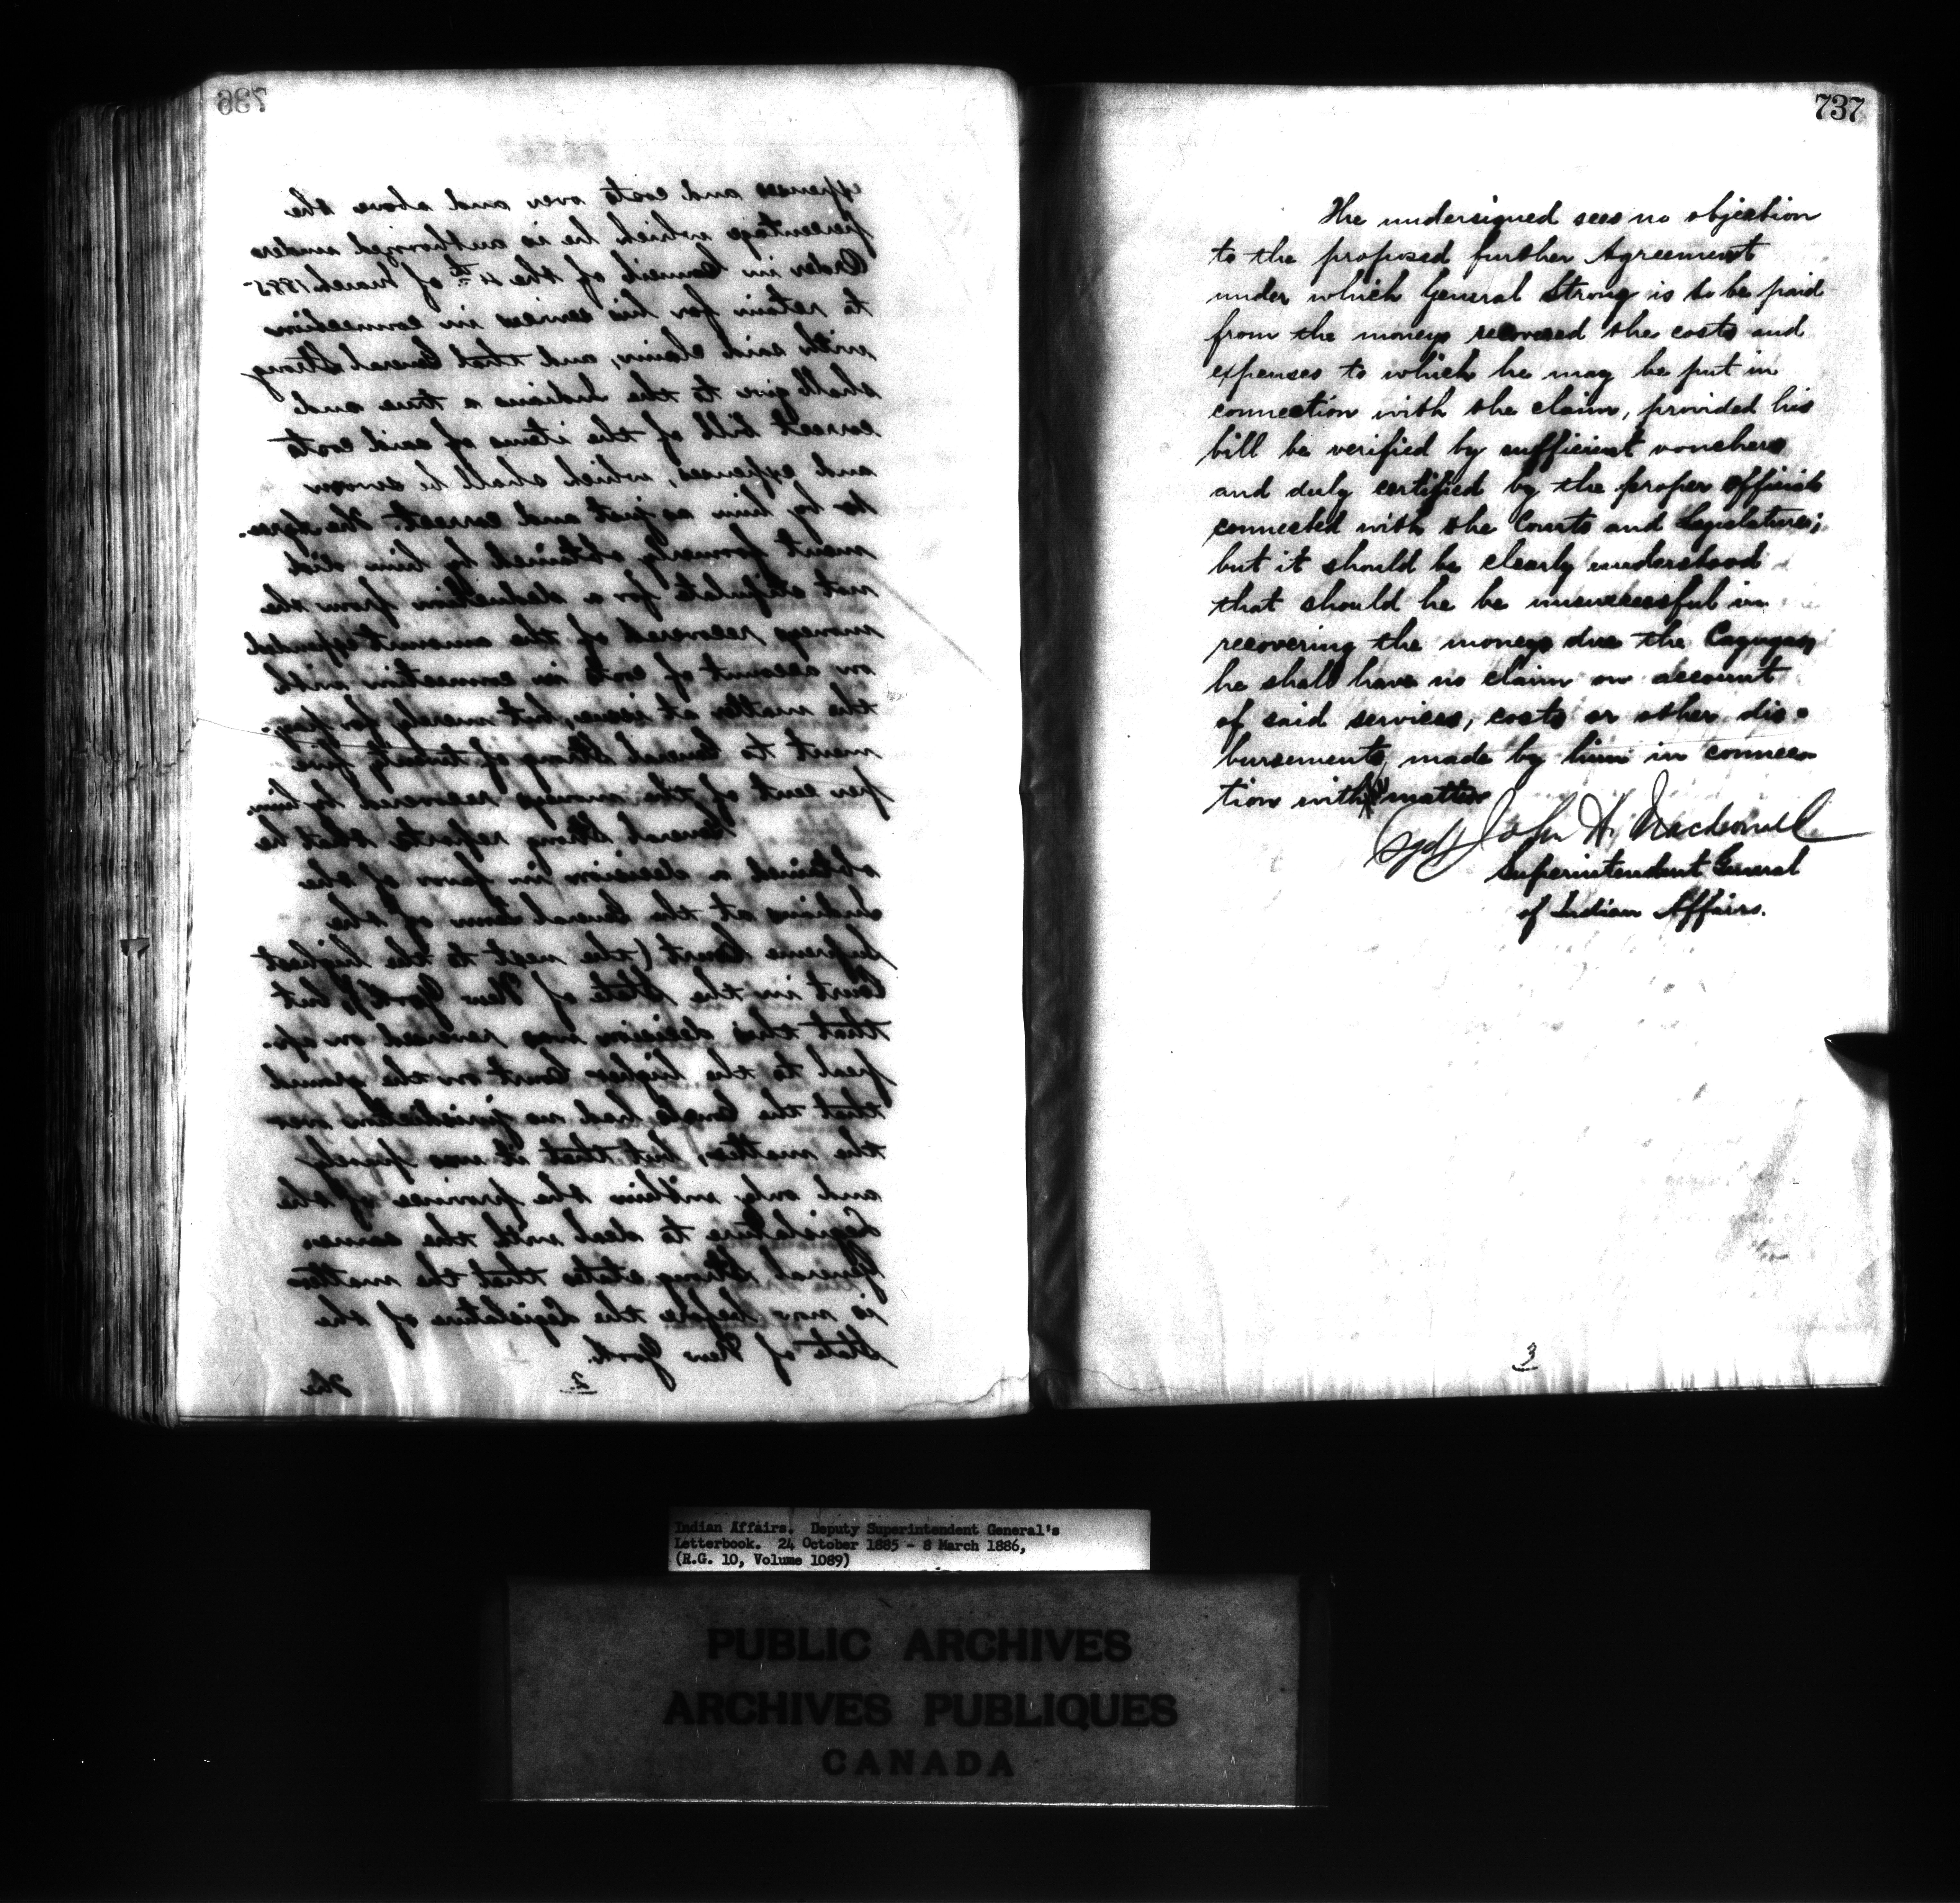 736
expenses and costs over and above the
percentage which he is authorized under
Order in Council of the 4th of March 1885
to retain for his services in connection
with said claim, and that General Strong
shall give to the Indians a true and
correct bill of the items of said costs
and expenses, which shall be sworn
to by him as just and correct. The Agree-
ment formerly obtained by him did
not stipulate for a deduction from the
moneys recovered of the amount expended
on account of costs in connection with
the matter at issue, but merely for pay-
ment to General Strong of twenty five
per cent of the moneys recovered by him.
General Strong reports that he
obtained a decision in favor of the
Indians at the General Term of the
Supreme Court (the next to the highest
Court in the State of New York), but
that this decision was reversed on ap-
peal to the higher Court on the ground
that the Courts had no jurisdiction over
the matter, but that it was purely
and only within the province of the
Legislature to deal with the same.
General Strong states that the matter
is now before the Legislature of the
State of New York.
2
The
737
The undersigned sees no objection
to the proposed further Agreement
under which General Strong is to be paid
from the moneys recovered the costs and
expenses to which he may be put in
connection with the claim, provided his
bill be verified by sufficient vouchers
and duly certified by the proper officials
connected with the Courts and Legislature;
but it should be clearly understood
that should he be unsuccessful in
recovering the moneys due the Cayugas,
he shall have no claim on account
of said services, costs or other dis-
bursements, made by him in connec-
tion with matter
(Sgd) John A. Macdonald
Superintendent General
of Indian Affairs.
3
Indian Affairs. Deputy Superintendent General's
Letterbook. 24 October 1885 - 8 March 1886,
(R.G. 10, Volume 1089)
PUBLIC ARCHIVES
ARCHIVES PUBLIQUES
CANADA